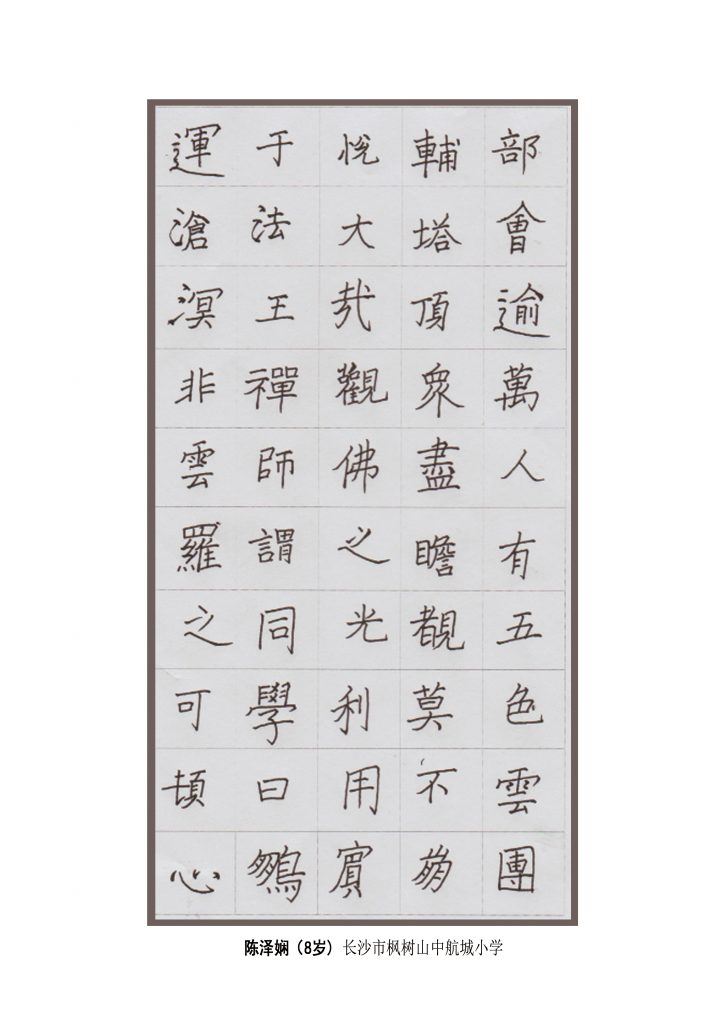 部會逾萬人有五色雲團
輔塔頂衆盡瞻覩莫不崩
悅大哉觀佛之光利用賓
于法王禪師謂同學曰鵬
運滄溟非雲羅之可頓心
陈泽娴（8岁）长沙市枫树山中航城小学